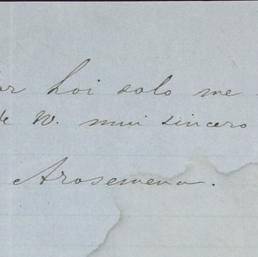 or hoi solo me
de V. mui sincero
Arosemena.